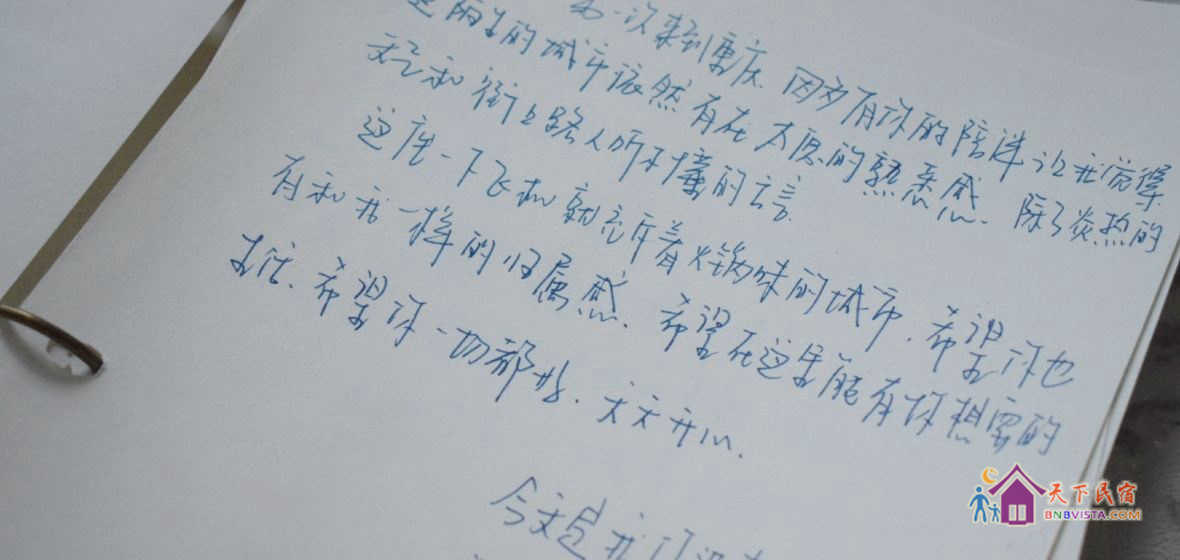 第一次来到重庆 因为有你的陪伴让我觉得
陌生的城市依然有在太原的熟悉感、除了炎热的
天气和街上路人听不懂的言
这座一下飞机就充斥着火锅味的城市、希望你也
有和我一样的归属感、希望在这里能有你想要的
生活、希望你一切都好、天天开心、
今天是我们
天下民宿
BNBVISTA.COM